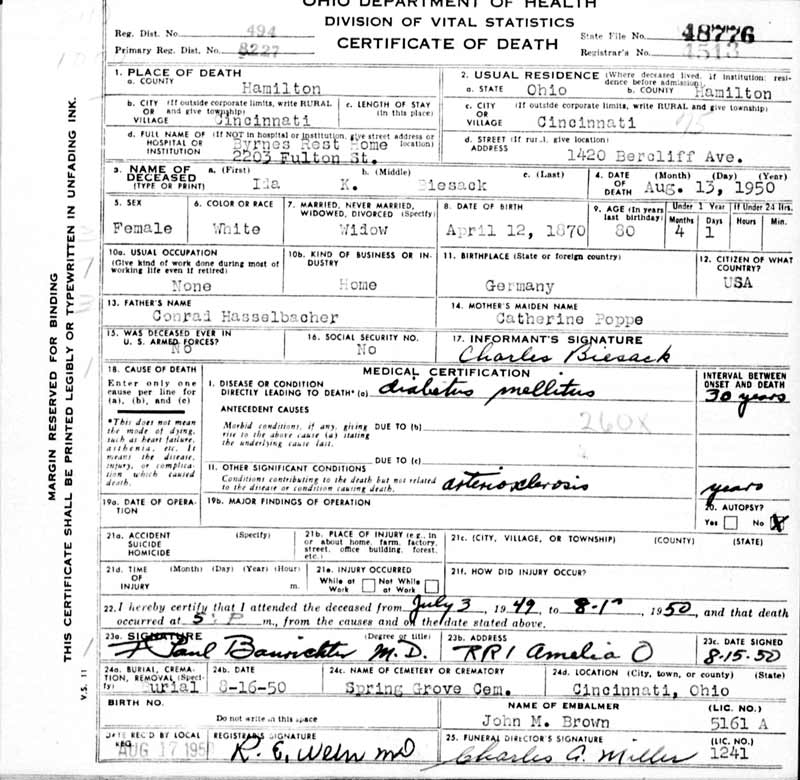 OHIO DEPARTMENT OF HEALTH
DIVISION OF VITAL STATISTICS
CERTIFICATE OF DEATH
Reg. Dist. No. 494
Primary Reg. Dist. No. 8227
State File No. 48776
Registrar's No. 4513
1. PLACE OF DEATH
a. COUNTY Hamilton
b. CITY (If outside corporate limits, write RURAL OR and give township) VILLAGE Cincinnati
c. LENGTH OF STAY (In this place)
d. FULL NAME OF (If NOT in hospital or institution, give street address or location) HOSPITAL OR INSTITUTION Byrnes Rest Home
2203 Fulton St.
2. USUAL RESIDENCE (Where deceased lived. If institution: residence before admission)
a. STATE Ohio b. COUNTY Hamilton
c. CITY (If outside corporate limits, write RURAL and give township) OR VILLAGE Cincinnati
d. STREET (If rural, give location) ADDRESS 1420 Bercliff Ave.
3. NAME OF DECEASED (TYPE OR PRINT) a. (First) Ida b. (Middle) K. c. (Last) Biesack
4. DATE OF DEATH (Month) (Day) (Year) Aug. 13, 1950
5. SEX Female
6. COLOR OR RACE White
7. MARRIED, NEVER MARRIED, WIDOWED, DIVORCED (Specify) Widow
8. DATE OF BIRTH April 12, 1870
9. AGE (In years last birthday) 80 Under 1 Year Months 4 Days 1 If Under 24 Hrs. Hours Min.
10a. USUAL OCCUPATION (Give kind of work done during most of working life even if retired) None
10b. KIND OF BUSINESS OR INDUSTRY Home
11. BIRTHPLACE (State or foreign country) Germany
12. CITIZEN OF WHAT COUNTRY? USA
13. FATHER'S NAME Conrad Hasselbacher
14. MOTHER'S MAIDEN NAME Catherine Poppe
15. WAS DECEASED EVER IN U. S. ARMED FORCES? No
16. SOCIAL SECURITY NO. No
17. INFORMANT'S SIGNATURE Charles Biesack
18. CAUSE OF DEATH
Enter only one cause per line for (a), (b), and (c)
*This does not mean the mode of dying, such as heart failure, asthenia, etc. It means the disease, injury, or complication which caused death.
MEDICAL CERTIFICATION
INTERVAL BETWEEN ONSET AND DEATH
I. DISEASE OR CONDITION DIRECTLY LEADING TO DEATH* (a) diabetus mellitus 30 years
ANTECEDENT CAUSES
Morbid conditions, if any, giving rise to the above cause (a) stating the underlying cause last.
DUE TO (b)
260X
DUE TO (c)
II. OTHER SIGNIFICANT CONDITIONS
Conditions contributing to the death but not related to the disease or condition causing death. arteriosclerosis years
19a. DATE OF OPERATION
19b. MAJOR FINDINGS OF OPERATION
20. AUTOPSY? Yes No X
21a. ACCIDENT SUICIDE HOMICIDE (Specify)
21b. PLACE OF INJURY (e.g., in or about home, farm, factory, street, office building, forest, etc.)
21c. (CITY, VILLAGE, OR TOWNSHIP) (COUNTY) (STATE)
21d. TIME OF INJURY (Month) (Day) (Year) (Hour) m.
21e. INJURY OCCURRED While at Work Not While at Work
21f. HOW DID INJURY OCCUR?
22. I hereby certify that I attended the deceased from July 3, 1949, to 8-1 1950, and that death
occurred at 5 P m., from the causes and on the date stated above.
23a. SIGNATURE (Degree or title) Paul Baurichter M.D.
23b. ADDRESS RR1 Amelia O
23c. DATE SIGNED 8-15-50
24a. BURIAL, CREMATION, REMOVAL (Specify) Burial
24b. DATE 8-16-50
24c. NAME OF CEMETERY OR CREMATORY Spring Grove Cem.
24d. LOCATION (City, town, or county) (State) Cincinnati, Ohio
BIRTH NO.
Do not write in this space
NAME OF EMBALMER John M. Brown
(LIC. NO.) 5161 A
DATE REC'D BY LOCAL REG. AUG 17 1950
REGISTRAR'S SIGNATURE R. E. Wehr MD
25. FUNERAL DIRECTOR'S SIGNATURE Charles A. Miller
(LIC. NO.) 1241
MARGIN RESERVED FOR BINDING
THIS CERTIFICATE SHALL BE PRINTED LEGIBLY OR TYPEWRITTEN IN UNFADING INK.
V.S. 11